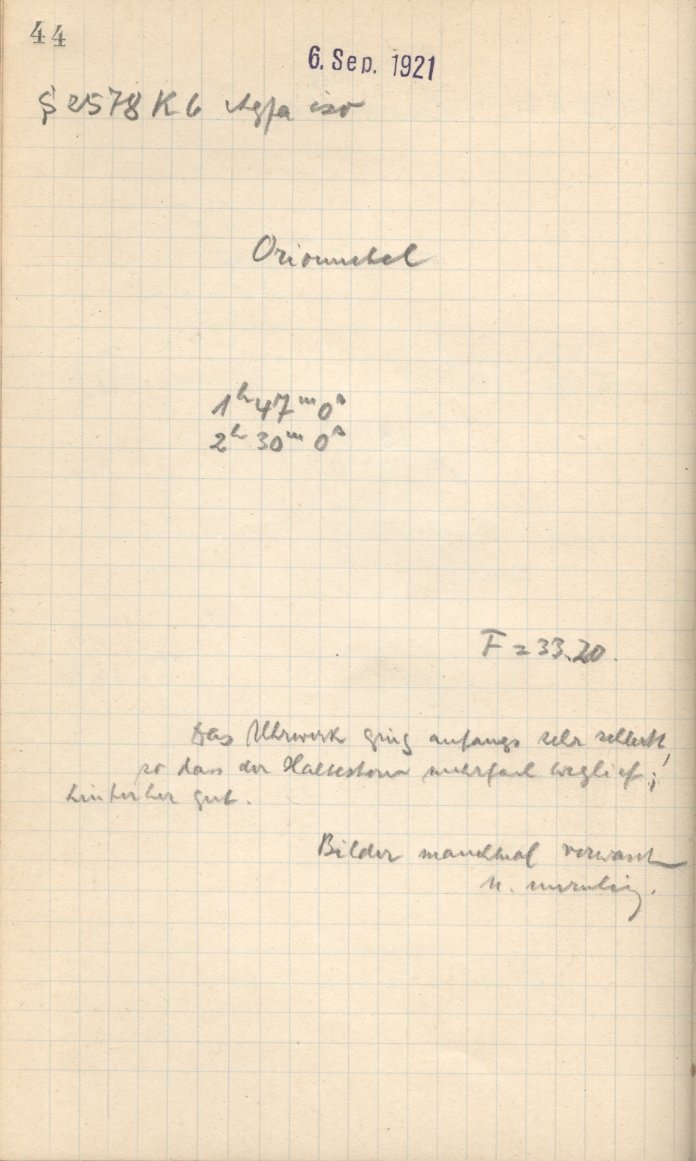 44
6. Sep. 1921
§ 2578 K 6 Agfa iso
Orionnebel
1h 47m 0s
2h 30m 0s
F = 33.20.
Das Uhrwerk ging anfangs sehr schlecht,
so dass der Haltestern mehrfach weglief;
hinterher gut.
Bilder manchmal verwasch
u. unruhig.